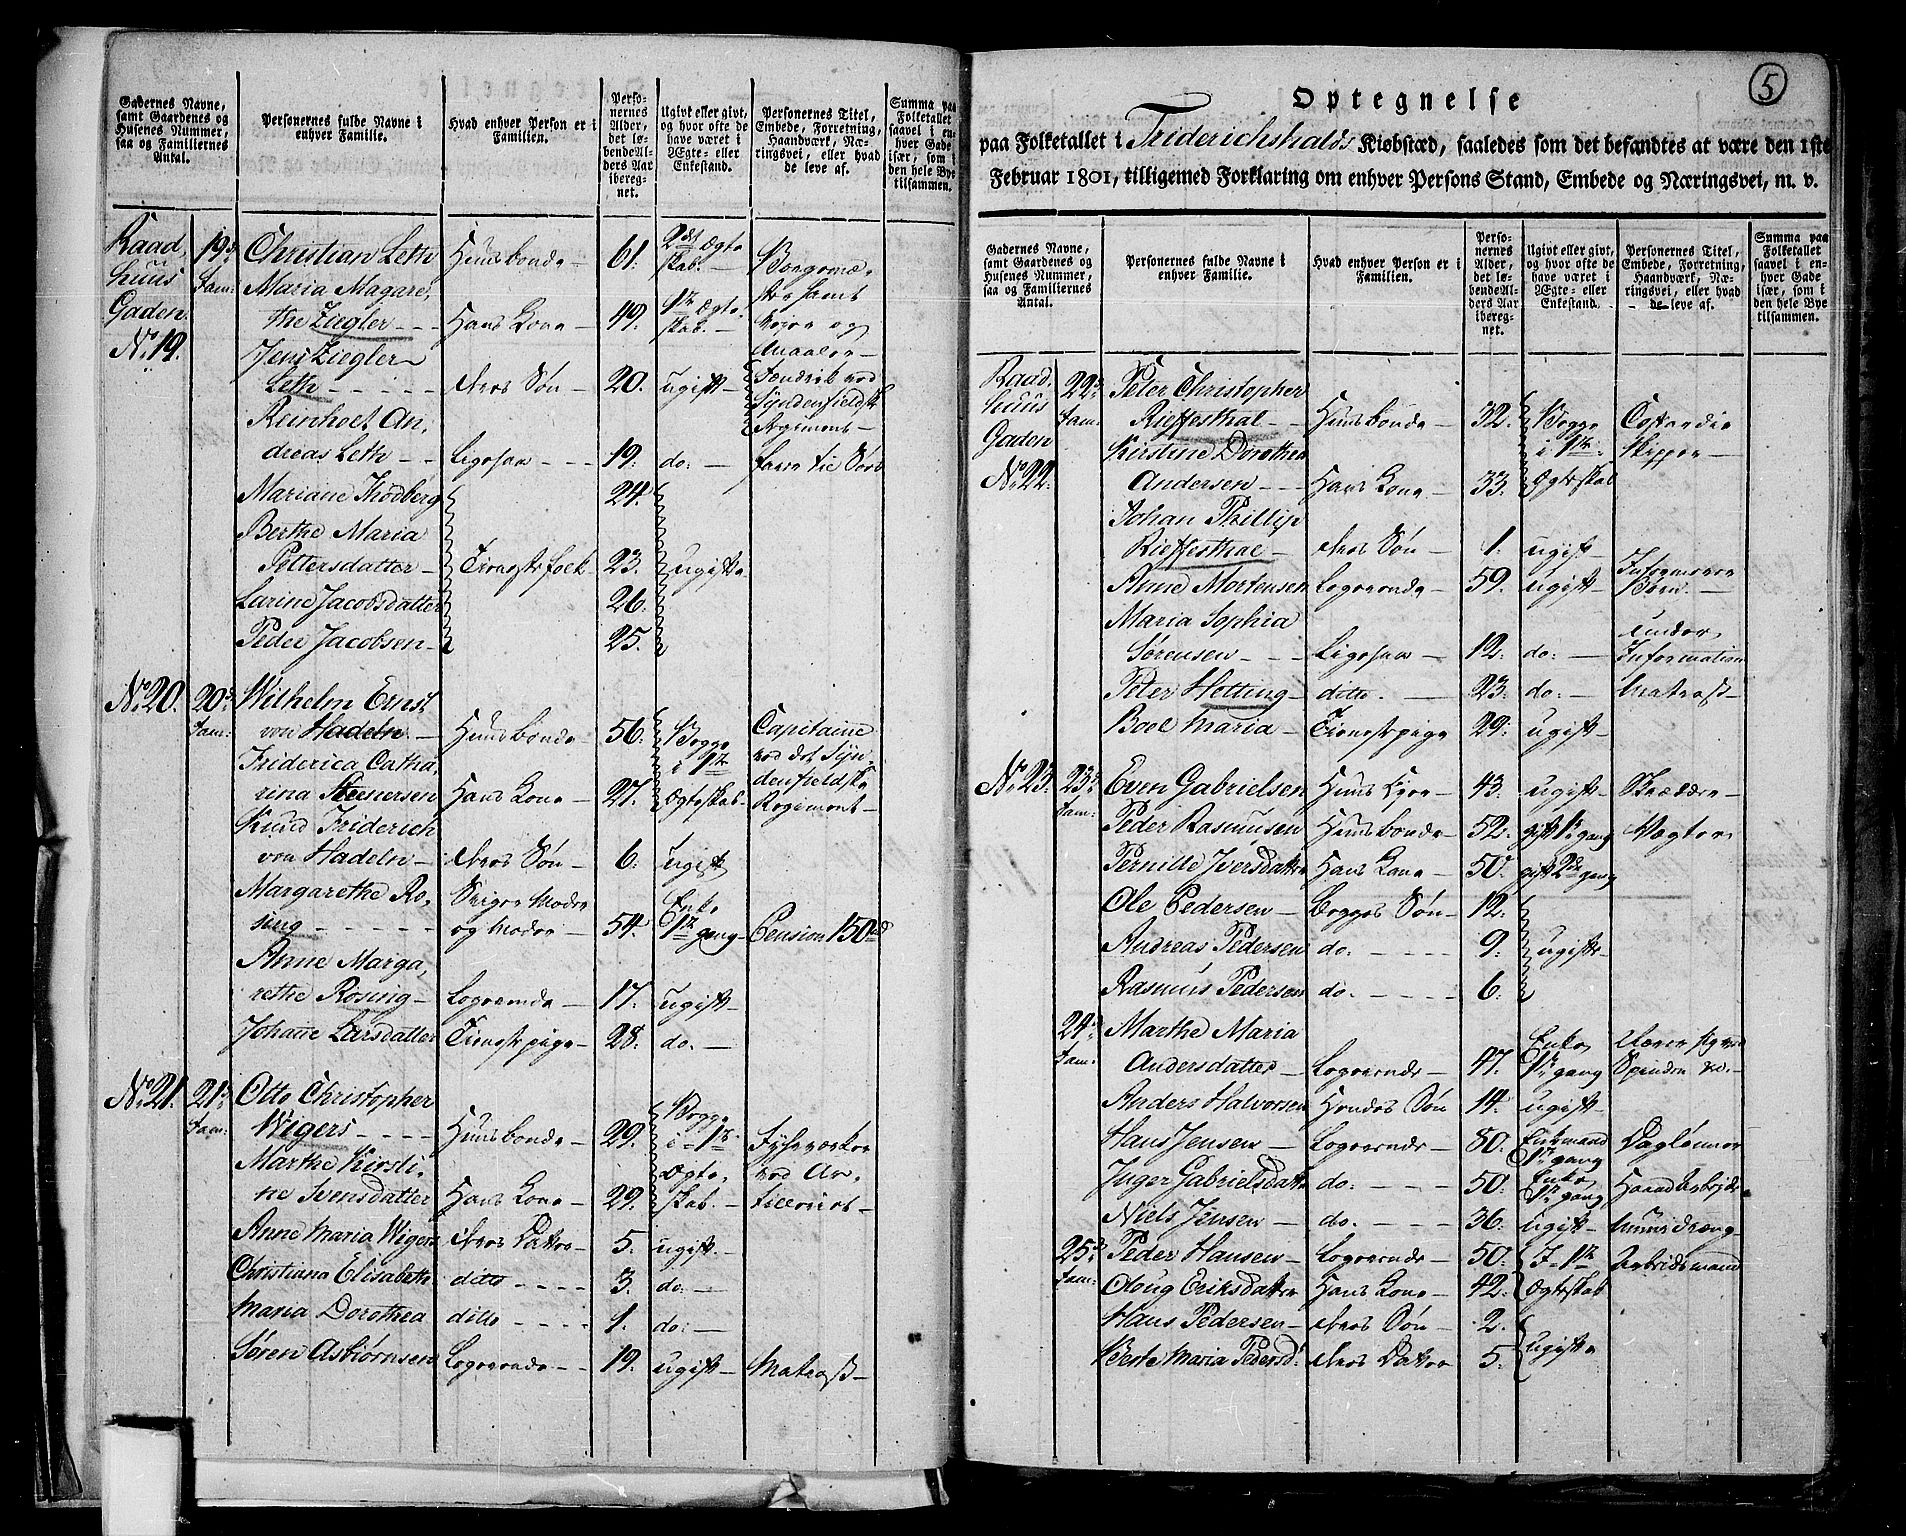 Gadernes Navne, samt Gaardenes og Husenes Nummer, saa og Familiernes Antal.
Personernes fulde Navne i enhver Familie.
Hvad enhver Person er i Familien.
Personernes Alder, det løbende Alders Aar iberegnet.
Ugivt eller givt, og hvor ofte de have været i Ægte- eller Enkestand.
Personernes Titel, Embede, Forretning, Haandværk, Næringsvei, eller hvad de leve af.
Summa paa Folketallet saavel i enhver Gade især, som i den hele Bye tilsammen.
Raad, huus Gaden No 19. 19de Fam:
Christian Leth Huusbonde 61. 2det Ægte skab. Borgeme,
Maria Magare, ster samt
the Ziegler Hans Kone 49. 1te Ægte, skab. Veier og
Jens Ziegler Maaler
Leth deres Søn 20. ugift Fendrik ved
Reinholt An, Syndenfieldske Regiment
dreas Leth Ligesaa 19. do: faser til Søes
Mariane Thodberg 24.
Berthe Maria
Pettersdatter Tienestefolk 23. ugifte
Larine Jacobsdatter 26.
Peder Jacobsen 25.
No 20. 20de Fam: Wilhelm Ernst
von Hadeln Huusbonde 56. Begge Capitaine
Friderica Catha, i 1te ved det Syn,
rina Steenersen Hans Kone 27. Ægteskab denfieldske Regiment
Knud Friderich
von Hadeln deres Søn 6. ugift
Margarethe Ro, Sviger Moder Enke
sing og Moder 54. 1te gang Pension 150 rd
Anne Marga,
rethe Rosing Logerende 17. ugift
Johane Larsdatter Tienestepige 28. do:
No 21. 21de Fam: Otto Christopher
Wigers Huusbonde 29. Begge i 1te Fyhrverker
Marthe Kirsti, Ægte, ved Ar,
ne Svensdatter Hans Kone 29. skab. tilleriet
Anne Maria Wigers deres Datter 5. ugift
Christiana Elisabeth ditto 3. do:
Maria Dorothea ditto 1. do:
Søren Asbiørnsen Logerende 19. ugift Matros
5
Optegnelse
paa Folketallet i Friderichshalds Kiøbstæd, saaledes som det befandtes at være den 1ste
Februar 1801, tilligemed Forklaring om enhver Persons Stand, Embede og Næringsvei, m. v.
Gadernes Navne, samt Gaardenes og Husenes Nummer, saa og Familiernes Antal.
Personernes fulde Navne i enhver Familie.
Hvad enhver Person er i Familien.
Personernes Alder, det løbende Alders Aar iberegnet.
Ugivt eller givt, og hvor ofte de have været i Ægte- eller Enkestand.
Personernes Titel, Embede, Forretning, Haandværk, Næringsvei, eller hvad de leve af.
Summa paa Folketallet saavel i enhver Gade især, som i den hele Bye tilsammen.
Raad, huus Gaden No 22. 22de Fam: Peter Christopher
Rieffesthal Huusbonde 32. Begge i 1te Cofardie
Kirstine Dorothea Skipper
Andersen Hans Kone 33. Ægteskab
Johan Phillip
Rieffesthal deres Søn 1. ugift
Anne Mortensen Logerende 59. ugift Informerer Børn.
Maria Sophia under
Sørensen Ligesaa 12. do: Information
Peter Hetting ditto 23. do: Matros
Boel Maria Tienestepige 29. ugift
No 23. 23de Fam: Even Gabrielsen Huus Eyer 43. ugift Skrædder
Peder Rasmusen Huusbonde 52. gift 1te gang Vægter
Pernille Iversdatter Hans Kone 50. gift 2de gang
Ole Pedersen Begges Søn 12.
Andreas Pedersen do. 9. ugifte
Rasmus Pedersen do. 6.
24de Fam: Marthe Maria
Andersdatter Logerende 47. Enke 1te gang
Anders Halvorsen Hendes Søn 14. ugift
Hans Jensen Logerende 80. Enkemand 1te gang Dagleiner
Inger Gabrielsdatter do. 50. Enke 1te gang Haand Arbejde
Niels Jensen do. 36. ugift Muurdreng
25de Fam: Peder Hansen Logerende 50. I 1te Arbeidsmand
Oloug Eriksdatter Hans Kone 42. Ægteskab
Hans Pedersen deres Søn 2.
Berte Maria Pedersd: deres Datter 5. ugifte